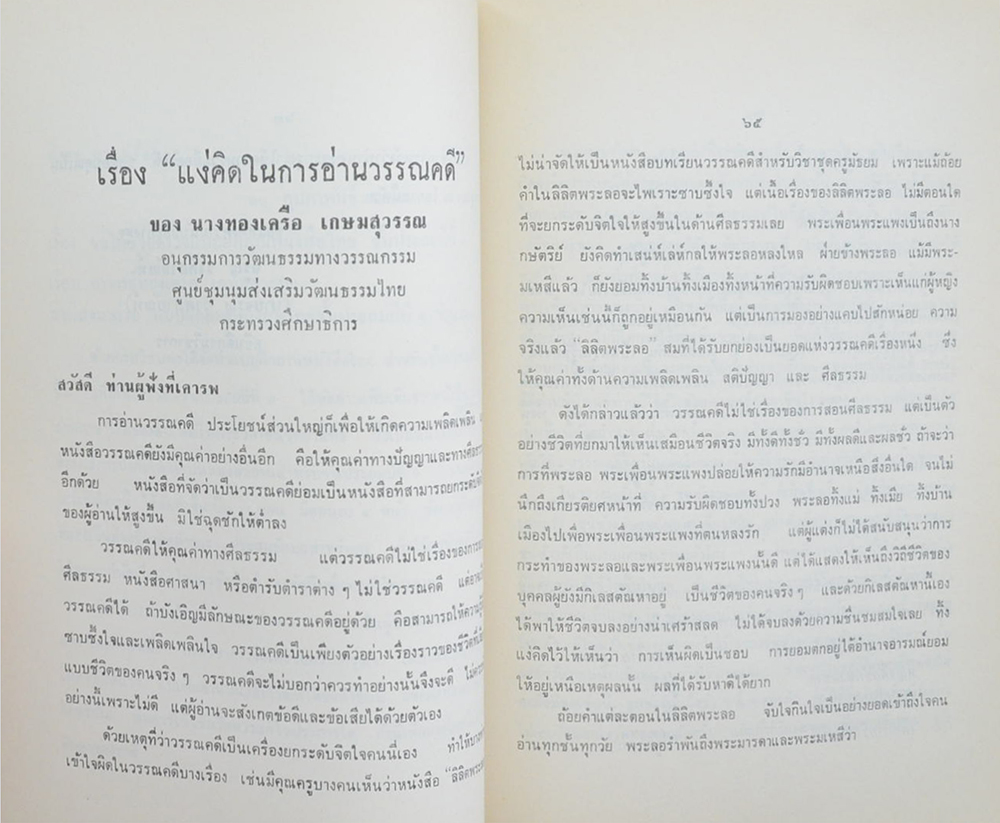 เรื่อง “แง่คิดในการอ่านวรรณคดี”
ของ นางทองเครือ เกษมสุวรรณ
อนุกรรมการวัฒนธรรมทางวรรณกรรม
ศูนย์ชุมนุมส่งเสริมวัฒนธรรมไทย
กระทรวงศึกษาธิการ
สวัสดี ท่านผู้ฟังที่เคารพ
การอ่านวรรณคดี ประโยชน์ส่วนใหญ่ก็เพื่อให้เกิดความเพลิดเพลิน
หนังสือวรรณคดียังมีคุณค่าอย่างอื่นอีก คือให้คุณค่าทางปัญญาและทางศีลธรรม
อีกด้วย หนังสือที่จัดว่าเป็นวรรณคดีย่อมเป็นหนังสือที่สามารถยกระดับ
ของผู้อ่านให้สูงขึ้น มิใช่ฉุดชักให้ต่ำลง
วรรณคดีให้คุณค่าทางศีลธรรม แต่วรรณคดีไม่ใช่เรื่องของการ
ศีลธรรม หนังสือศาสนา หรือตำรับตำราต่าง ๆ ไม่ใช่วรรณคดี
วรรณคดีได้ ถ้าบังเอิญมีลักษณะของวรรณคดีอยู่ด้วย คือสามารถให้ความ
ซาบซึ้งใจและเพลิดเพลินใจ วรรณคดีเป็นเพียงตัวอย่างเรื่องราวของชีวิต
แบบชีวิตของคนจริง ๆ วรรณคดีจะไม่บอกว่าควรทำอย่างนั้นจึงจะดี
อย่างนี้เพราะไม่ดี แต่ผู้อ่านจะสังเกตข้อดีและข้อเสียได้ด้วยตัวเอง
ด้วยเหตุที่ว่าวรรณคดีเป็นเครื่องยกระดับจิตใจคนนี่เอง ทำให้
เข้าใจผิดในวรรณคดีบางเรื่อง เช่นมีคุณครูบางคนเห็นว่าหนังสือ “ลิลิตพระ
๖๕
ไม่น่าจัดให้เป็นหนังสือบทเรียนวรรณคดีสำหรับวิชาชุดครูมัธยม เพราะแม้ถ้อย
คำในลิลิตพระลอจะไพเราะซาบซึ้งใจ แต่เนื้อเรื่องของลิลิตพระลอ ไม่มีตอนใด
ที่จะยกระดับจิตใจให้สูงขึ้นในด้านศีลธรรมเลย พระเพื่อนพระแพงเป็นถึงนาง
กษัตริย์ ยังคิดทำเสน่ห์เล่ห์กลให้พระลอหลงใหล ฝ่ายข้างพระลอ แม้มีพระ-
มเหสีแล้ว ก็ยังยอมทิ้งบ้านทิ้งเมืองทิ้งหน้าที่ความรับผิดชอบเพราะเห็นแก่ผู้หญิง
ความเห็นเช่นนี้ก็ถูกอยู่เหมือนกัน แต่เป็นการมองอย่างแคบไปสักหน่อย ความ
จริงแล้ว “ลิลิตพระลอ” สมที่ได้รับยกย่องเป็นยอดแห่งวรรณคดีเรื่องหนึ่ง ซึ่ง
ให้คุณค่าทั้งด้านความเพลิดเพลิน สติปัญญา และ ศีลธรรม
ดังได้กล่าวแล้วว่า วรรณคดีไม่ใช่เรื่องของการสอนศีลธรรม แต่เป็นตัว
อย่างชีวิตที่ยกมาให้เห็นเสมือนชีวิตจริง มีทั้งดีทั้งชั่ว มีทั้งผลดีและผลชั่ว ถ้าจะว่า
การที่พระลอ พระเพื่อนพระแพงปล่อยให้ความรักมีอำนาจเหนือสิ่งอื่นใด จนไม่
นึกถึงเกียรติยศหน้าที่ ความรับผิดชอบทั้งปวง พระลอทิ้งแม่ ทิ้งเมีย ทิ้งบ้าน
เมืองไปเพื่อพระเพื่อนพระแพงที่ตนหลงรัก แต่ผู้แต่งก็ไม่ได้สนับสนุนว่าการ
กระทำของพระลอและพระเพื่อนพระแพงนั้นดี แต่ได้แสดงให้เห็นถึงวิถีชีวิตของ
บุคคลผู้ยังมีกิเลสตัณหาอยู่ เป็นชีวิตของคนจริง ๆ และด้วยกิเลสตัณหานี้เอง
ได้พาให้ชีวิตจบลงอย่างน่าเศร้าสลด ไม่ได้จบลงด้วยความชื่นชมสมใจเลย ทิ้ง
แง่คิดไว้ให้เห็นว่า การเห็นผิดเป็นชอบ การยอมตกอยู่ใต้อำนาจอารมณ์ยอม
ให้อยู่เหนือเหตุผลนั้น ผลที่ได้รับหาดีได้ยาก
ถ้อยคำแต่ละตอนในลิลิตพระลอ จับใจกินใจเป็นอย่างยอดเข้าถึงใจคน
อ่านทุกชั้นทุกวัย พระลอรำพันถึงพระมารดาและพระมเหสีว่า